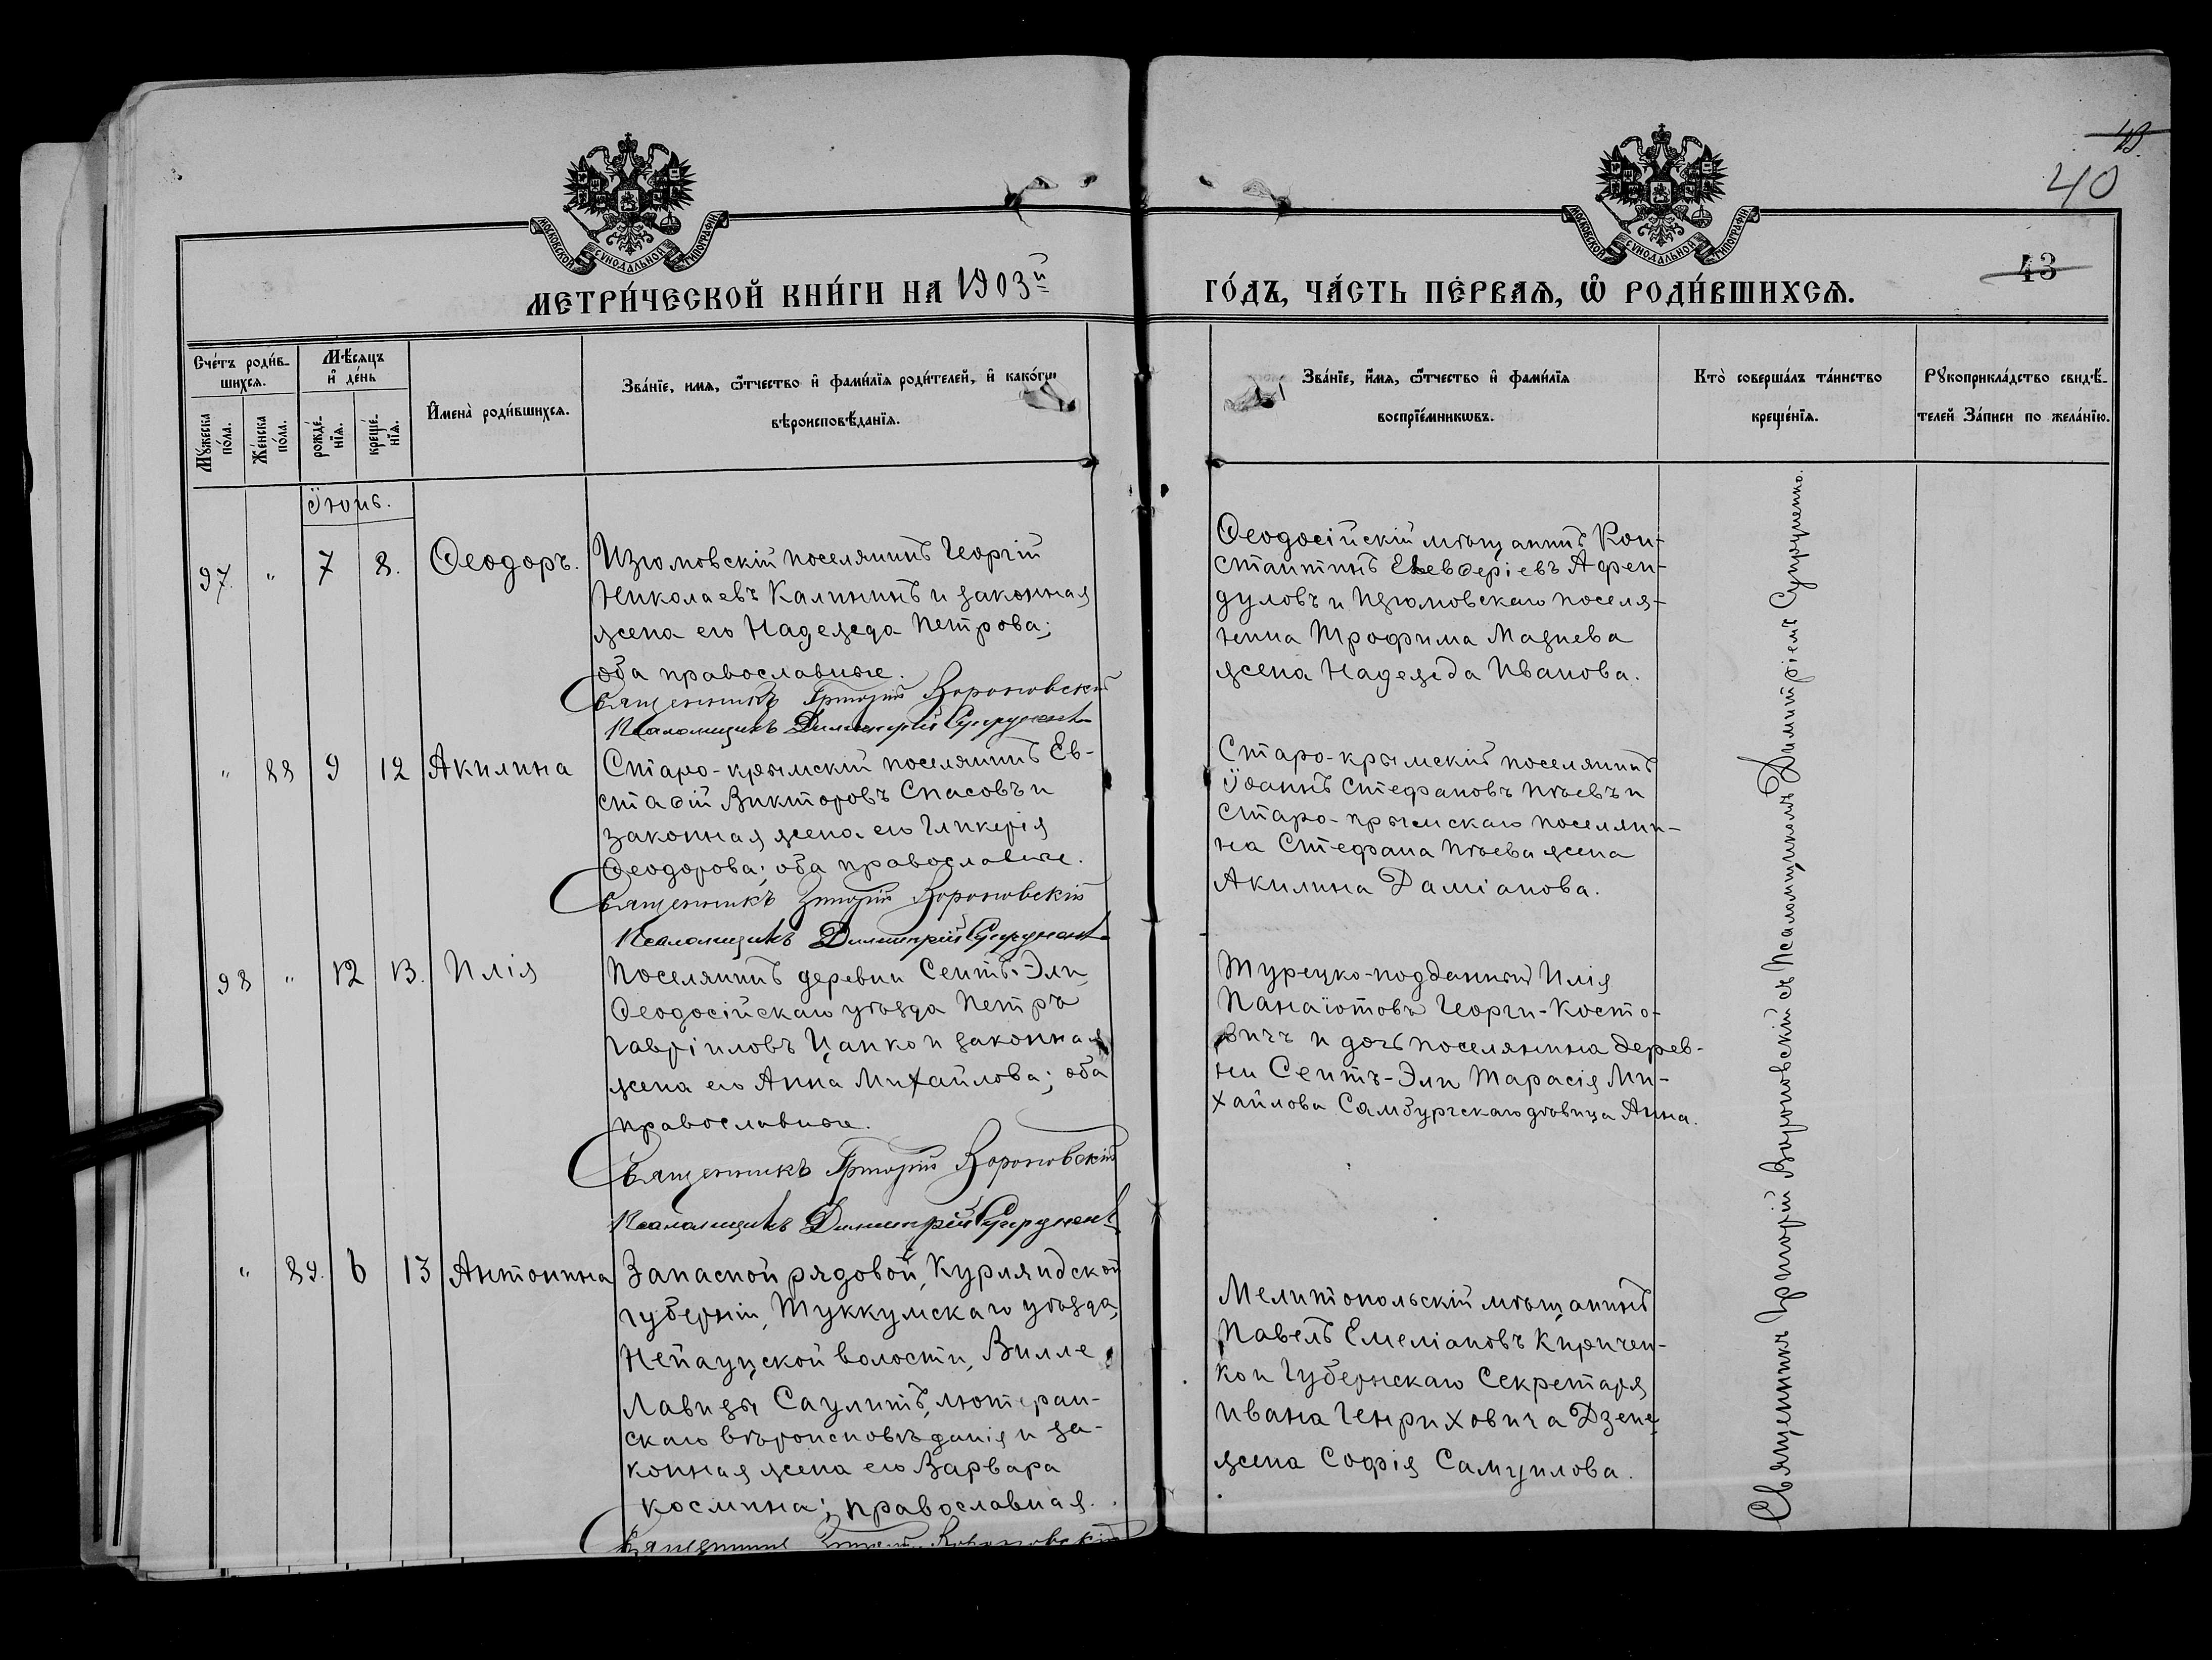 43
40
МОСКОВСКОЙ СѴНОДАЛЬНОЙ ТИПОГРАФІИ
МОСКОВСКОЙ СѴНОДАЛЬНОЙ ТИПОГРАФІИ
43
МЕТРИ́ЧЕСКОЙ КНИ́ГИ НА 1903й
ГО́ДЪ, ЧА́СТЬ ПЕ́РВАѦ, Ѡ҆ РОДИ́ВШИХСѦ.
Сче́тъ роди́в-
шихся.
Мꙋ́жеска по́ла.
Же́нска по́ла.
Мѣ́сяцъ
и҆ де́нь
рожде́-
нїя.
креще́-
нїя.
И҆мена̀ роди́вшихся.
Зва́нїе, имя, ѻ҆́тчество и҆ фами́лїя роди́телей, и҆ како́гѡ
вѣроисповѣ́данїя.
Зва́нїе, и҆́мя, ѻ҆́тчество и҆ фами́лїя
воспрїе́мникѡвъ.
Кто̀ соверша́лъ та́инство
креще́нїя.
Рꙋкоприкла́дство свидѣ́-
телей За́писи по жела́нїю.
Іюнь.
97 " 7 8. Ѳеодоръ.
Изюмовскій поселянинъ Георгій
Николаевъ Калининъ и законная
жена его Надежда Петрова;
оба православные.
Священникъ Григорій Вороновскій
Псаломщикъ Димитрій Супруненко
Ѳеодосійскій мѣщанинъ Кон-
стантинъ Елевѳеріевъ Афен-
дуловъ и Изюмовскаго поселя-
нина Трофима Мазнева
жена Надежда Иванова.
" 88 9 12 Акилина
Старо-крымскій поселянинъ Ев-
стаѳій Викторовъ Спасовъ и
законная жена его Гликерія
Ѳеодорова; оба православные.
Священникъ Григорій Вороновскій
Псаломщикъ Димитрій Супруненко
Старо-крымскій поселянинъ
Іоаннъ Стефановъ и
Старо-крымскаго поселяни-
на Стефана жена
Акилина Даміанова.
98 " 12 13. Илія
Поселянинъ деревни Сеитъ-Эли
Ѳеодосійскаго уѣзда Петръ
Гавріиловъ Цапко и законная
жена его Анна Михайлова; оба
православные.
Священникъ Григорій Вороновскій
Псаломщикъ Димитрій Супруненко
Турецко-подданный Илія
Панаіотовъ Георги-Косто-
вичъ и дочь поселянина дерев-
ни Сеитъ-Эли Тарасія Ми-
хайлова Самбургскаго дѣвица Анна.
" 89. 6 13 Антонина
Запасной рядовой, Курляндской
губерніи, Туккумскаго уѣзда,
волости, Вилле
Саулитъ, лютеран-
скаго вѣроисповѣданія и за-
конная жена его Варвара
Космина; православная.
Священникъ Григорій Вороновскій
Мелитопольскій мѣщанинъ
Павелъ Емеліановъ Киричен-
ко и Губернскаго Секретаря
Ивана Генриховича Дзене
жена Софія Самуилова.
Священникъ Григорій Вороновскій съ Псаломщикомъ Димитріемъ Супруненко.